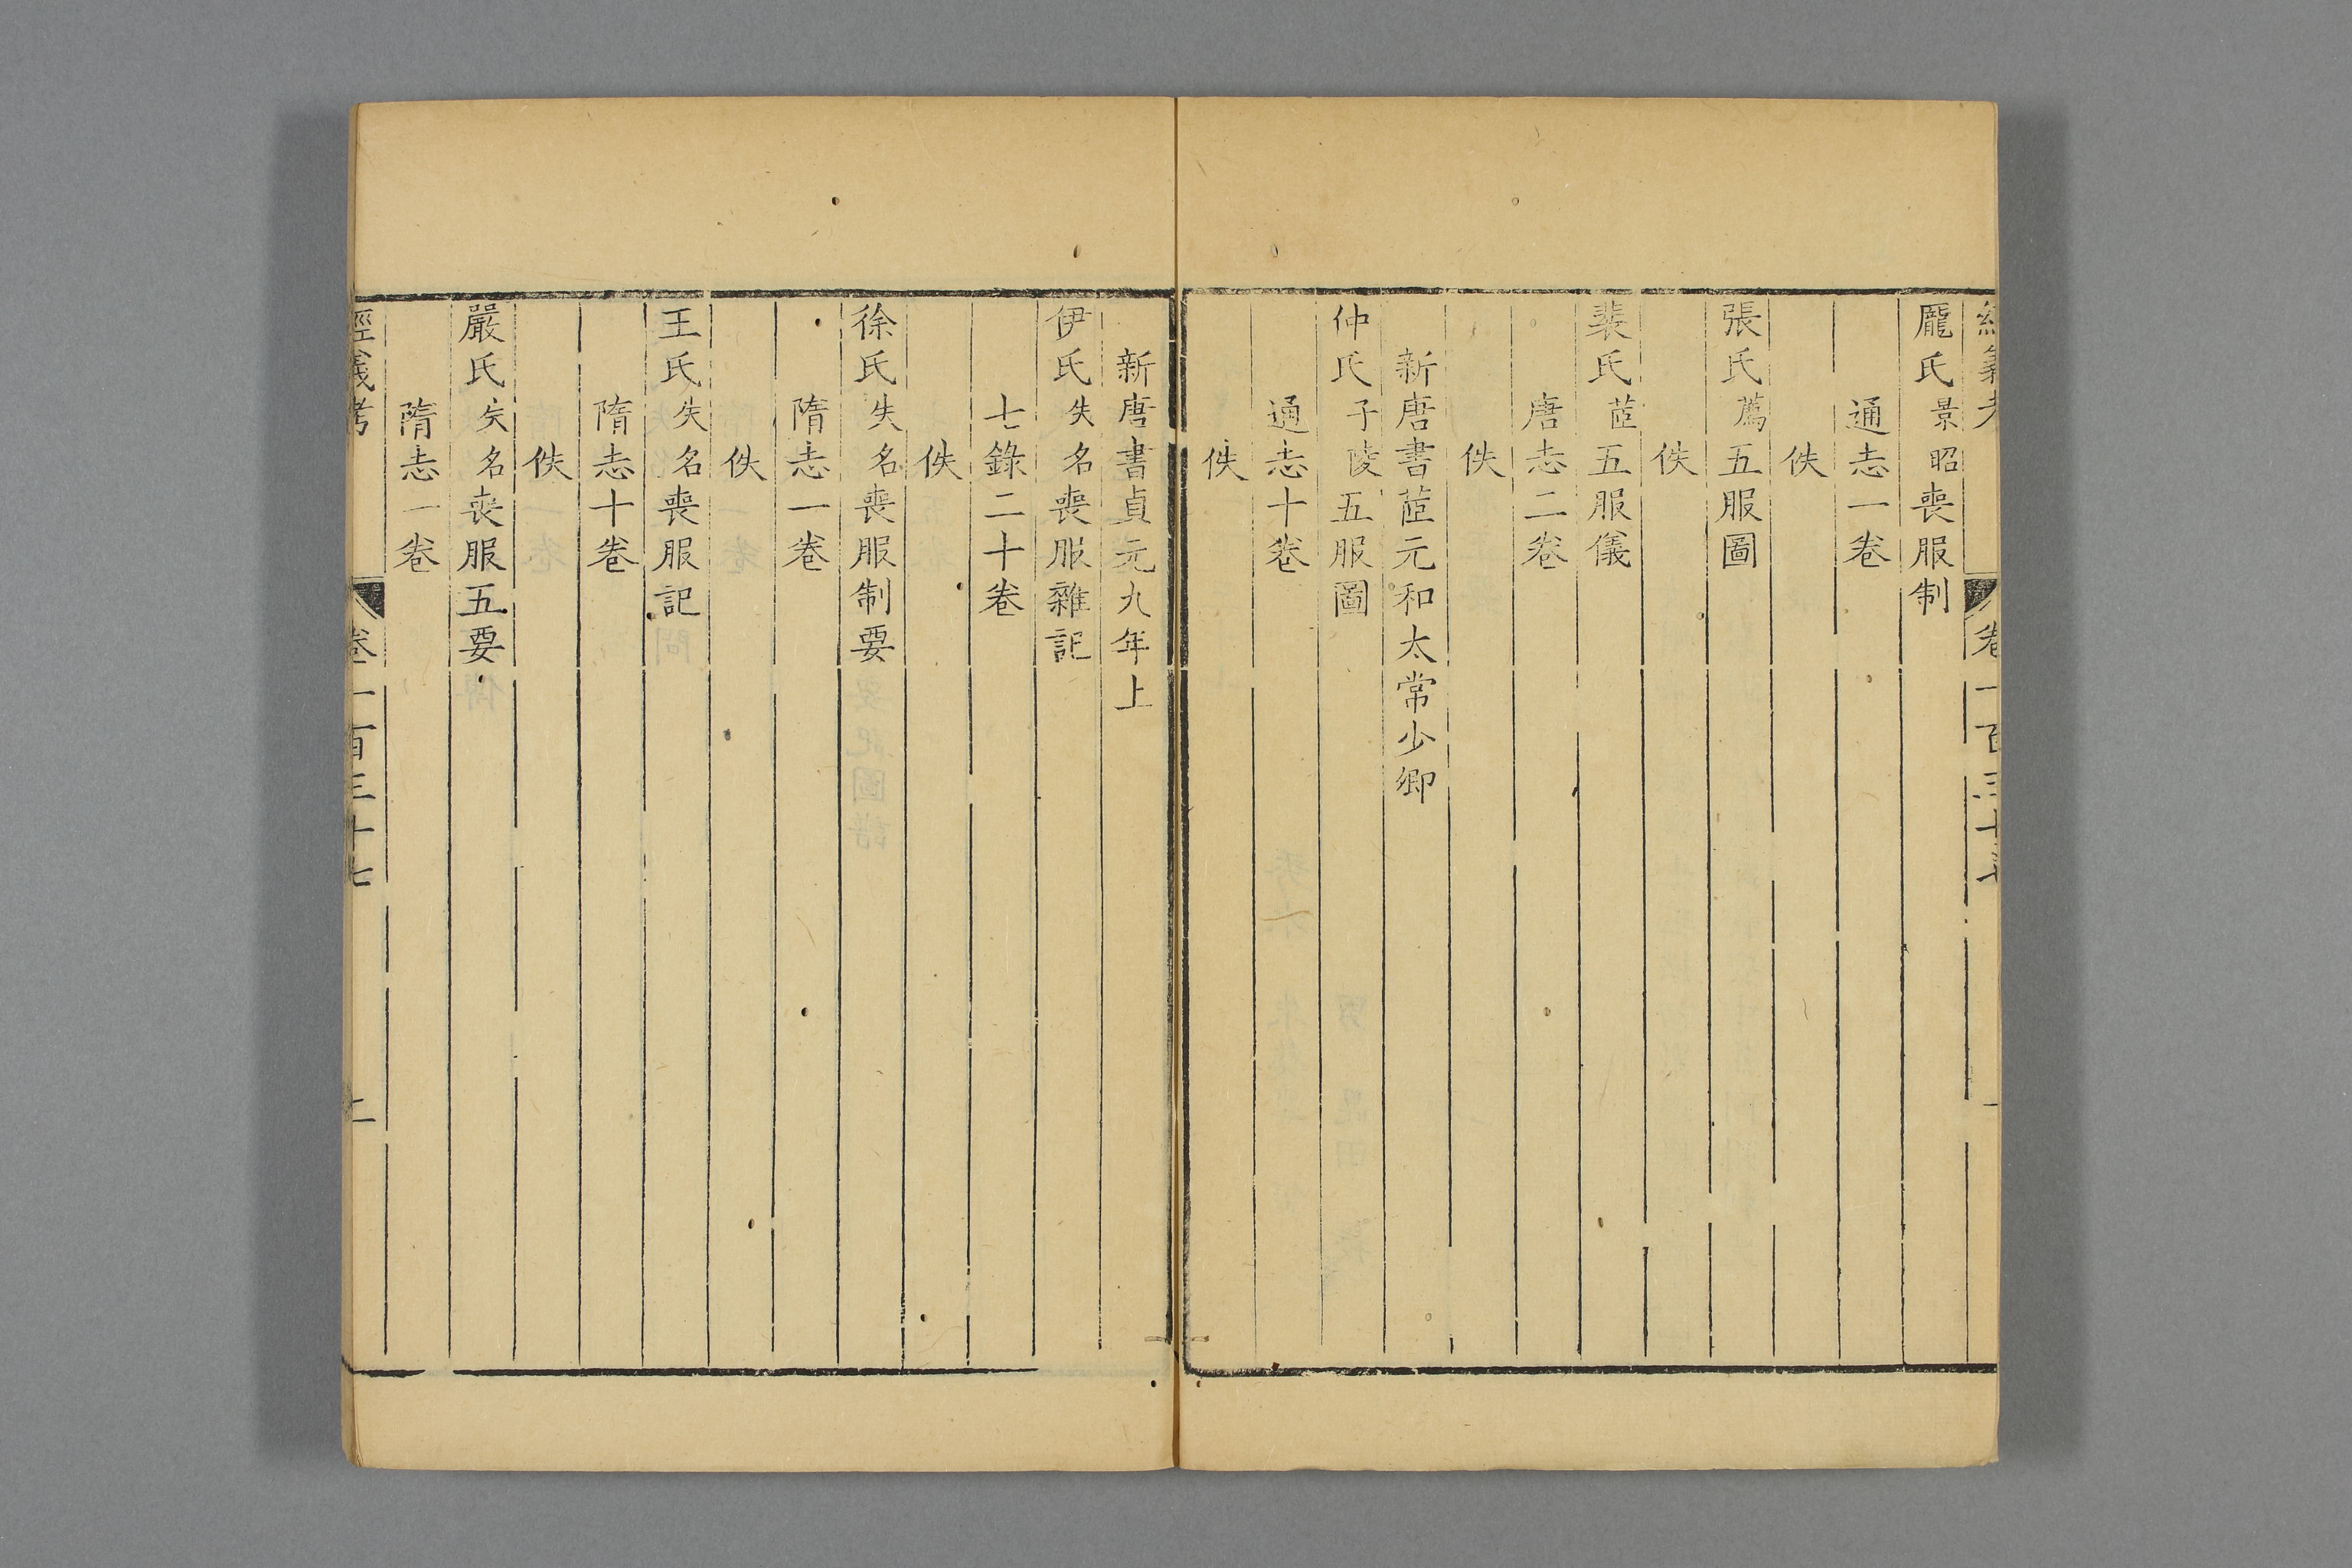 經義考 卷一百三十七 一
龎氏景昭喪服制
通志一卷
佚
張氏薦五服圖
佚
裴氏茝五服儀
唐志二卷
佚
新唐書茝元和太常少卿
仲氏子陵五服圖
通志十卷
佚
新唐書貞元九年上
伊氏失名喪服雜記
七錄二十卷
佚
徐氏失名喪服制要
隋志一卷
佚
王氏失名喪服記
隋志十卷
佚
嚴氏失名喪服五要
隋志一卷
經義考 卷一百三十七 二